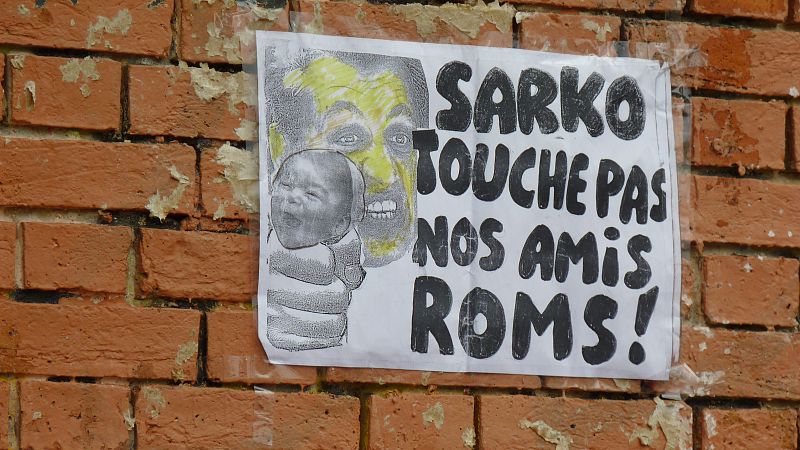 SARKO
TOUCHE PAS
NOS AMIS
ROMS!